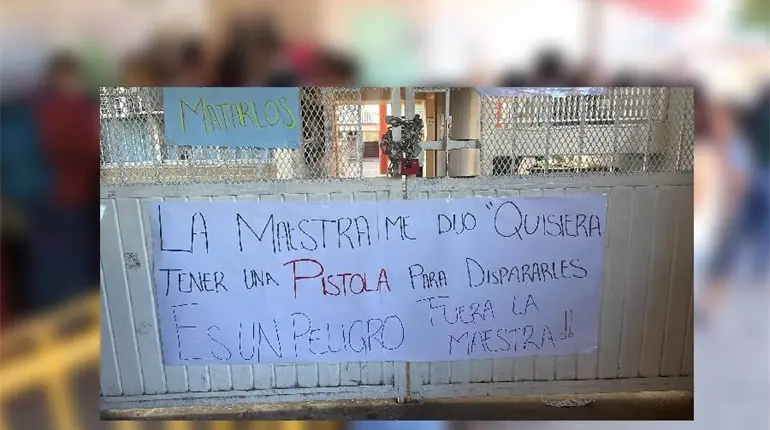 MATARLOS
LA MAESTRA ME DIJO "QUISIERA
TENER UNA PISTOLA PARA DISPARARLES
ES UN PELIGRO FUERA LA
MAESTRA!!